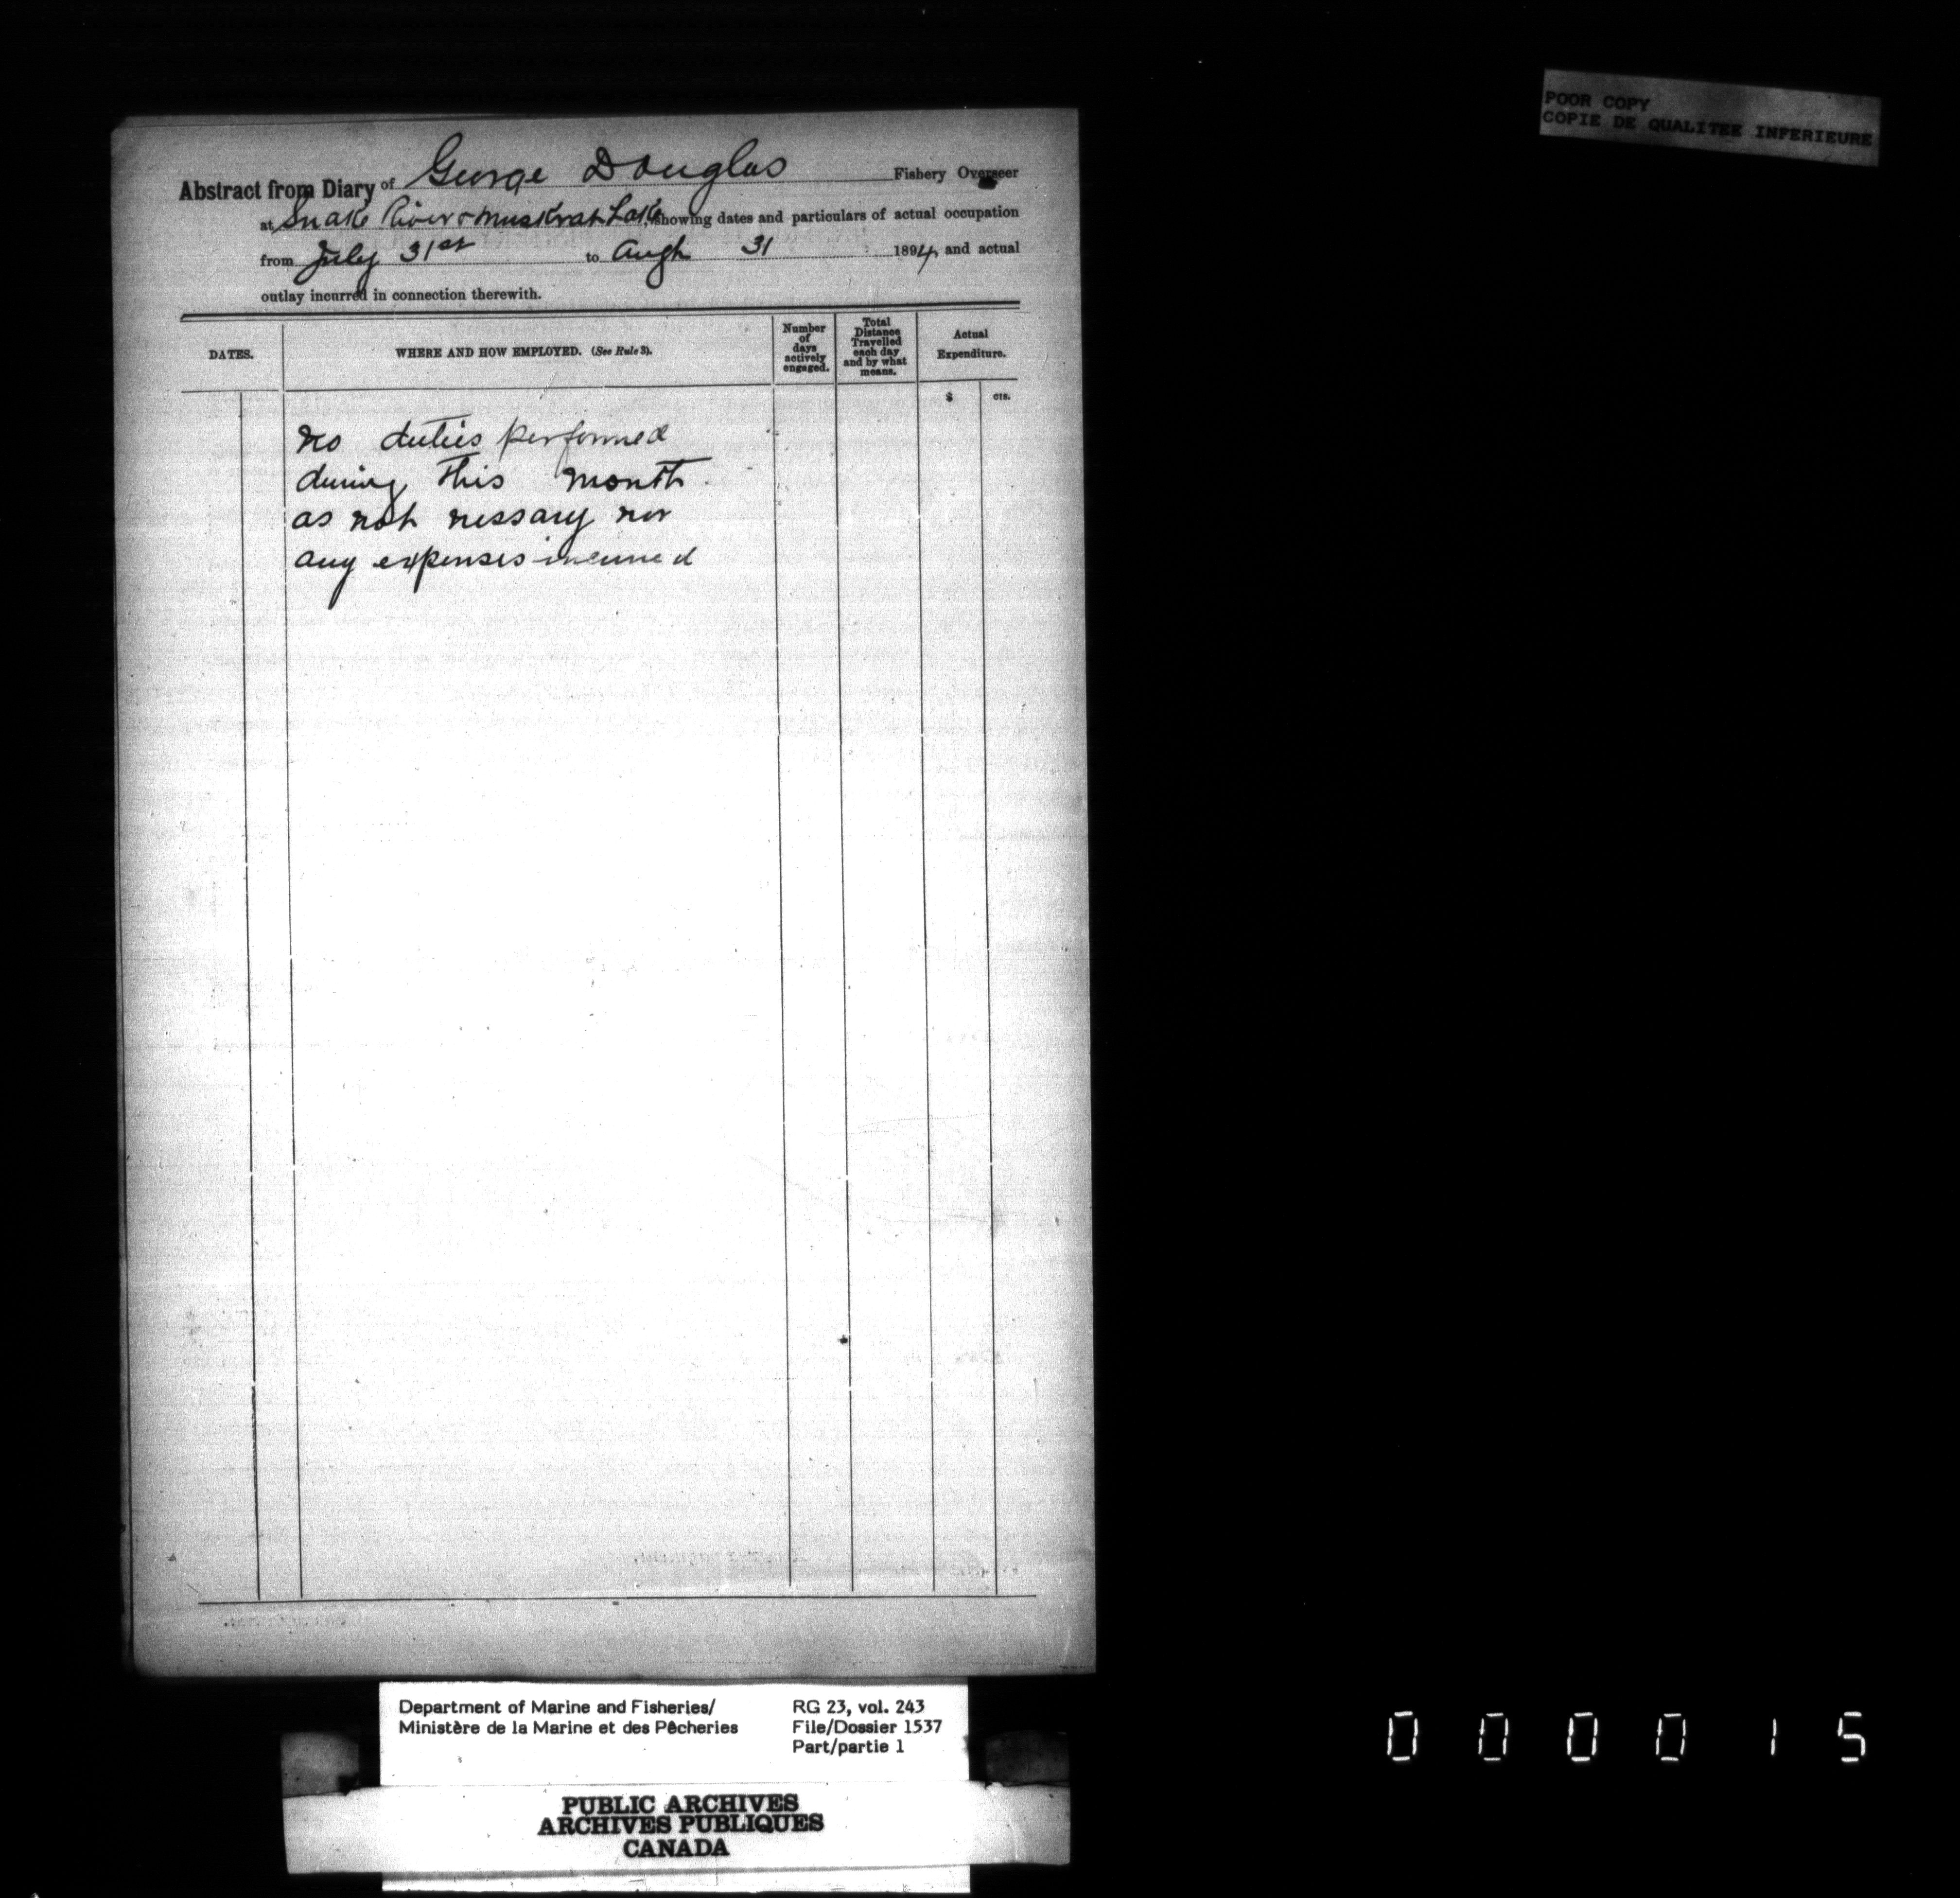 POOR COPY
COPIE DE QUALITEE INFERIEURE
Abstract from Diary of George Douglas Fishery Overseer
at Snake River & Muskrat Lake, showing dates and particulars of actual occupation
from July 31st to Augt 31 1894, and actual
outlay incurred in connection therewith.
DATES.
WHERE AND HOW EMPLOYED. (See Rule 3).
Number
of
days
actively
engaged.
Total
Distance
Travelled
each day
and by what
means.
Actual
Expenditure.
$ cts.
No duties performed
during this month
as not nessary nor
any expenses incurred
Department of Marine and Fisheries/
Ministère de la Marine et des Pêcheries
RG 23, vol. 243
File/Dossier 1537
Part/partie 1
PUBLIC ARCHIVES
ARCHIVES PUBLIQUES
CANADA
000015